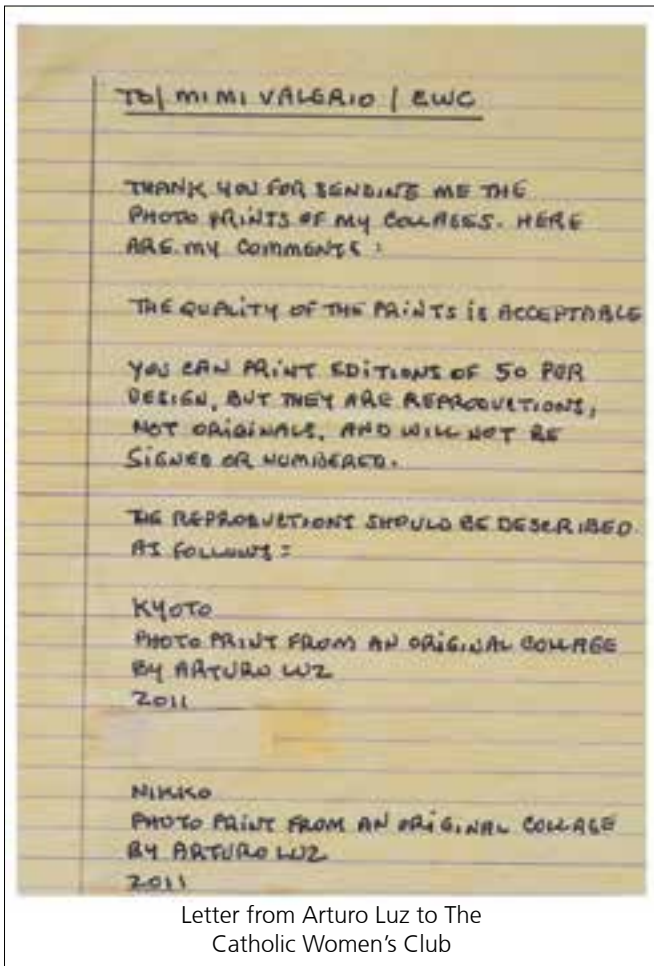 TO/ MIMI VALERIO / CWC
THANK YOU FOR SENDING ME THE
PHOTO PRINTS OF MY COLLAGES. HERE
ARE MY COMMENTS :
THE QUALITY OF THE PRINTS IS ACCEPTABLE
YOU CAN PRINT EDITIONS OF 50 PER
DESIGN, BUT THEY ARE REPRODUCTIONS,
NOT ORIGINALS, AND WILL NOT BE
SIGNED OR NUMBERED.
THE REPRODUCTIONS SHOULD BE DESCRIBED
AS FOLLOWS :
KYOTO
PHOTO PRINT FROM AN ORIGINAL COLLAGE
BY ARTURO LUZ
2011
NIKKO
PHOTO PRINT FROM AN ORIGINAL COLLAGE
BY ARTURO LUZ
2011
Letter from Arturo Luz to The
Catholic Women's Club